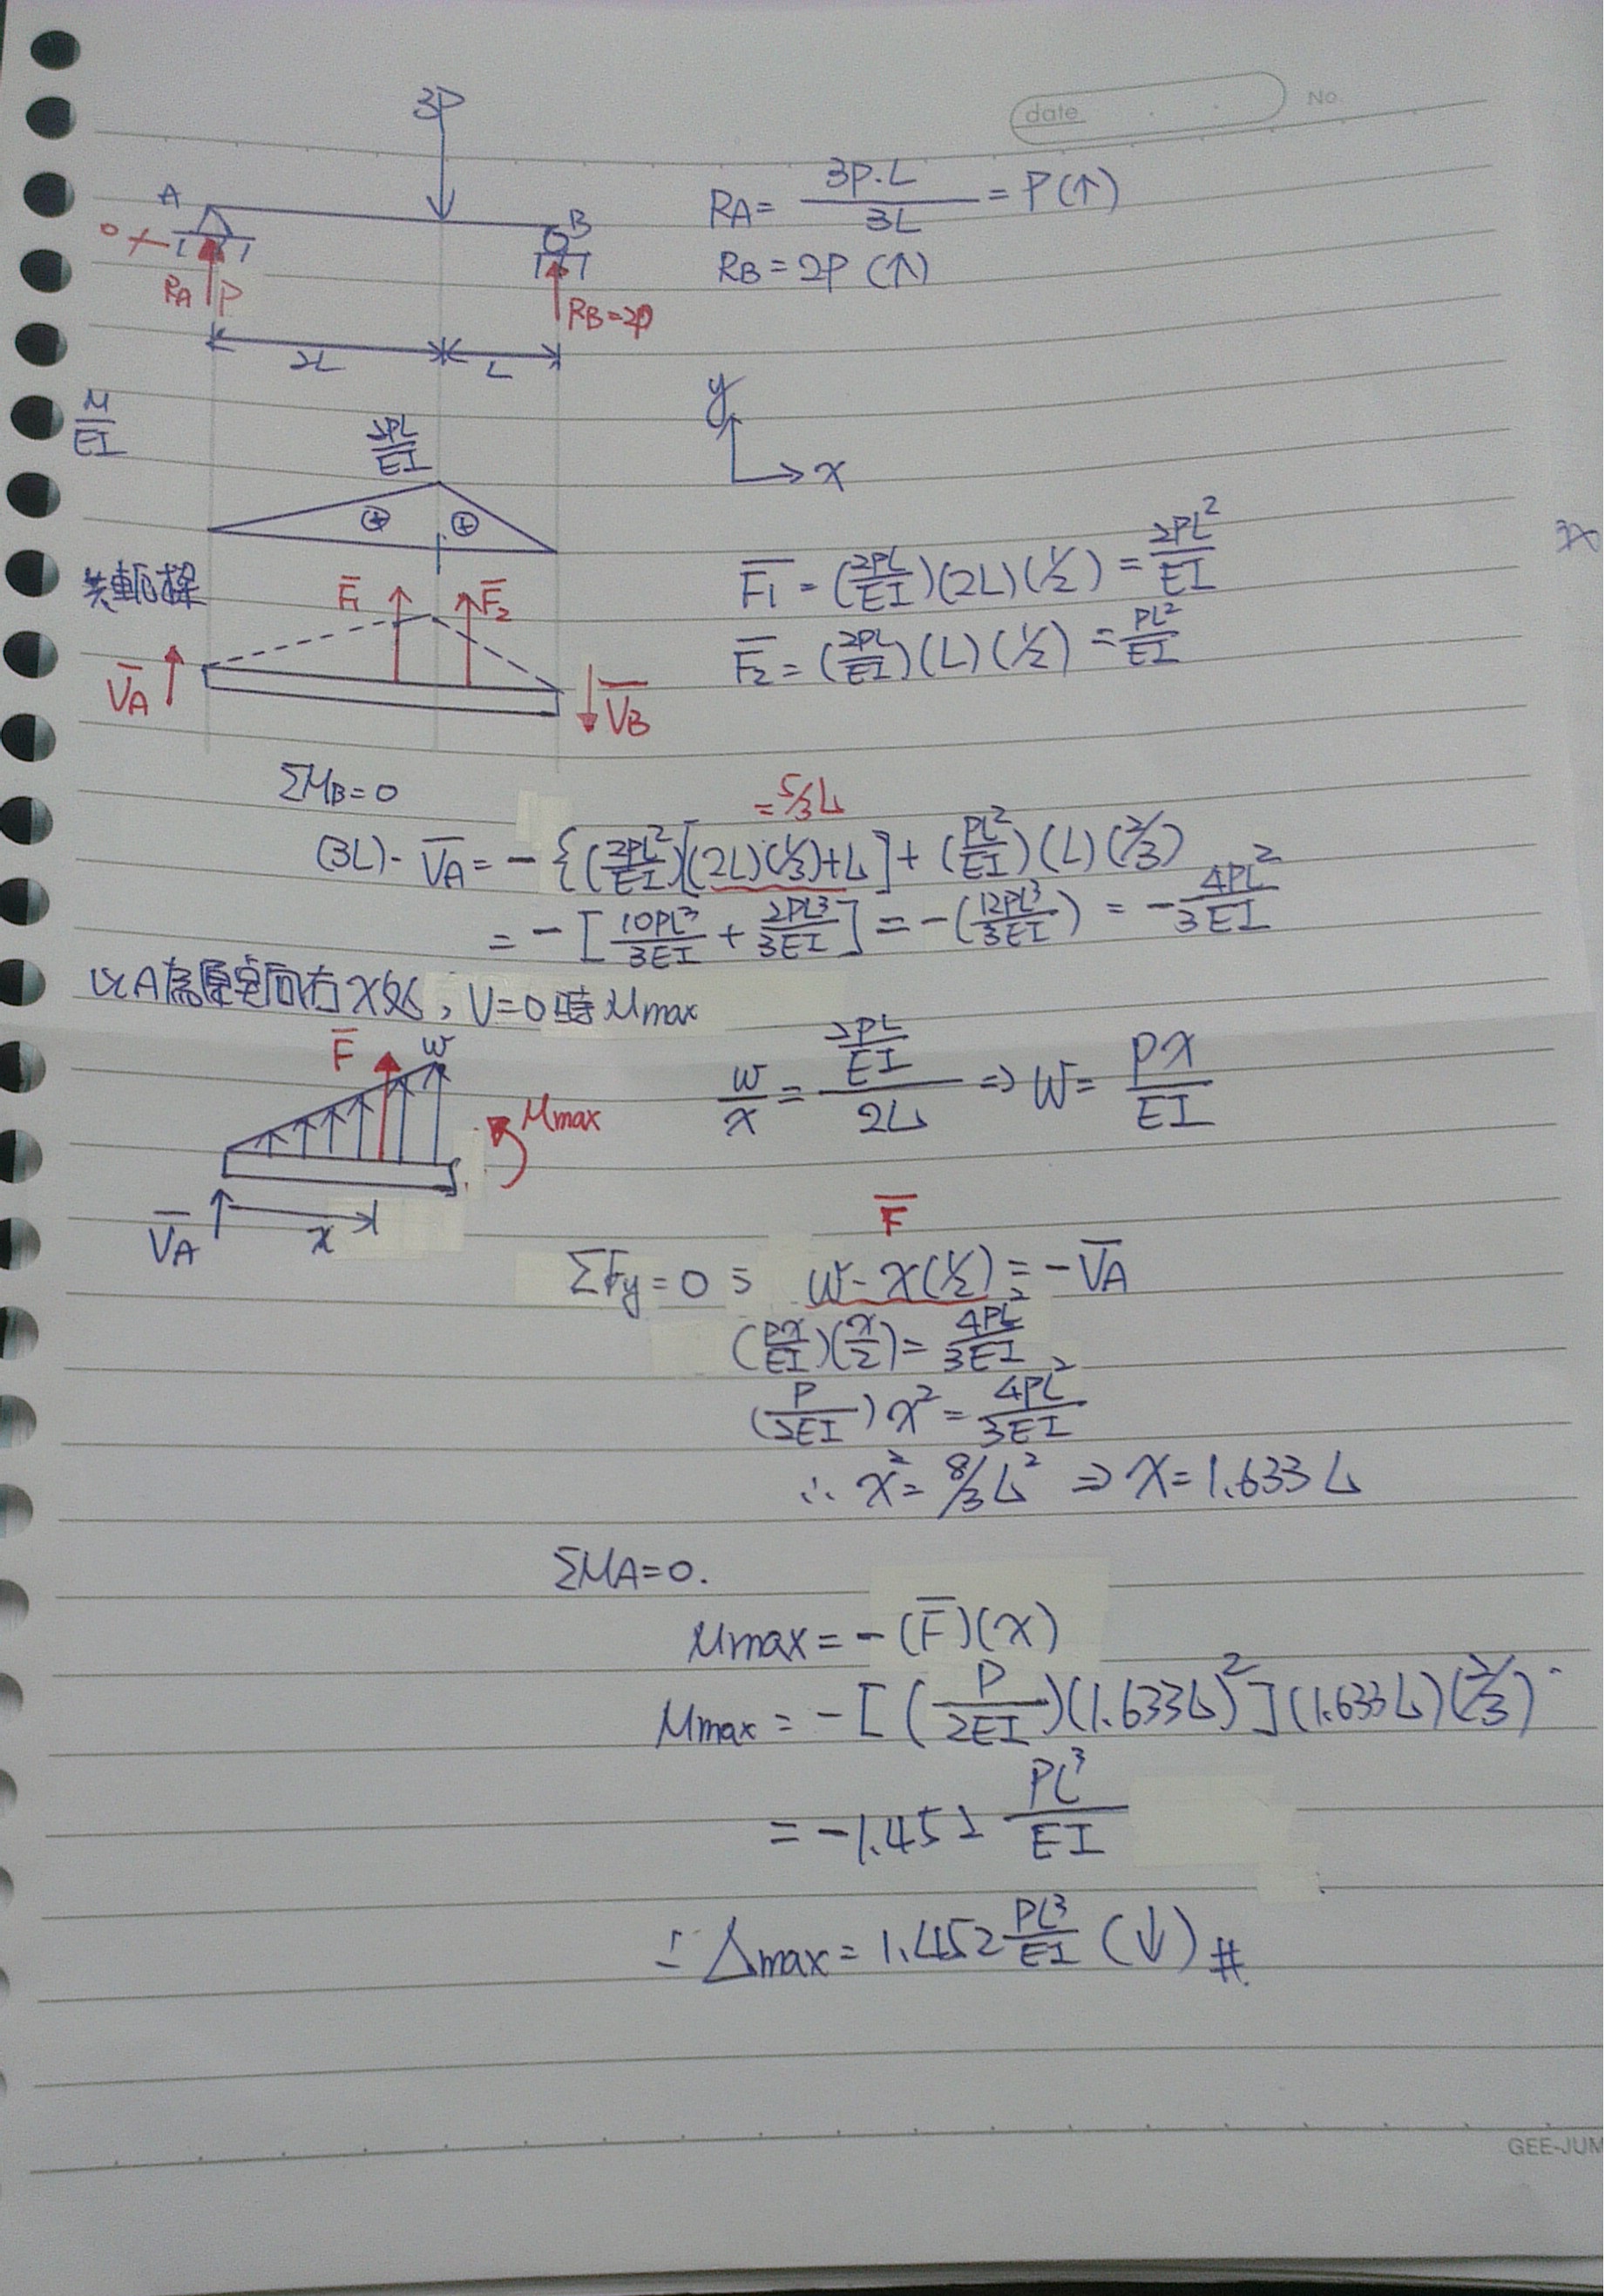 date No.
3P
A
0
RA P
B
RB=2P
2L L
RA= 3P.L/3L = P(↑)
RB=2P (↑)
M/EI
2PL/EI
⊕ ⊕
y
x
共軛樑
F̅1 F̅2
V̅A V̅B
F̅1=(2PL/EI)(2L)(1/2)=2PL²/EI
F̅2=(2PL/EI)(L)(1/2)=PL²/EI
ΣMB=0
=5/3L
(3L)·V̅A=-{(2PL²/EI)[(2L)(1/3)+L]+(PL²/EI)(L)(2/3)
=-[10PL³/3EI+2PL³/3EI]=-(12PL³/3EI)=-4PL²/3EI
以A為原點向右x處,V=0時Mmax
F̅ w
Mmax
V̅A x
w/x=(2PL/EI)/2L⇒w=Px/EI
F̅
ΣFy=0 ⇒ w·x(1/2)=-V̅A
(Px/EI)(x/2)=4PL²/3EI
(P/2EI)x²=4PL²/3EI
∴x²=8/3L²⇒x=1.633L
ΣMA=0.
Mmax=-(F̅)(x)
Mmax=-[(P/2EI)(1.633L)²](1.633L)(2/3)
=-1.452 PL³/EI
∴Δmax=1.452 PL³/EI (↓)#
GEE-JUM